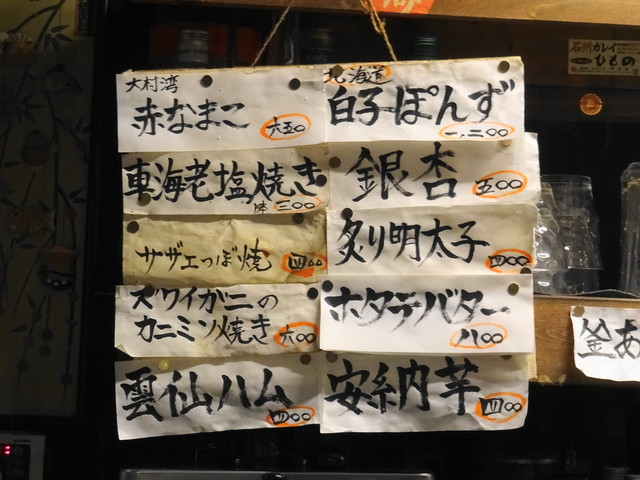 大村湾
赤なまこ
六五〇
車海老塩焼き
三〇〇
サザエつぼ焼
四〇〇
ズワイガニの
カニミソ焼き
六〇〇
雲仙ハム
四〇〇
北海道
白子ぽんず
一、二〇〇
銀杏
五〇〇
炙り明太子
四〇〇
ホタテバター
八〇〇
安納芋
四〇〇
石州カレイ
ひもの
釜あ